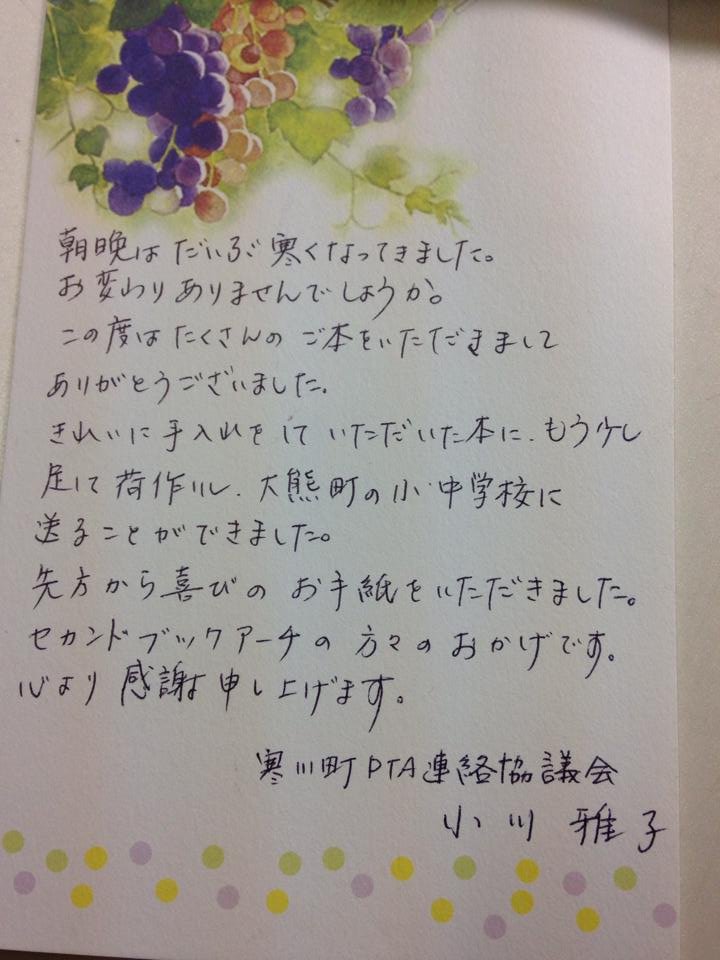 朝晩は だいぶ 寒くなってきました。
お変わりありませんでしょうか。
この度は たくさんの ご本をいただきまして
ありがとうございました。
きれいに手入れをして いただいた本に、もう少し
足して 荷作りし、大熊町の小・中学校に
送ることができました。
先方から喜びの お手紙をいただきました。
セカンドブックアーチの 方々の おかげです。
心より 感謝申し上げます。
寒川町PTA連絡協議会
小川 雅子